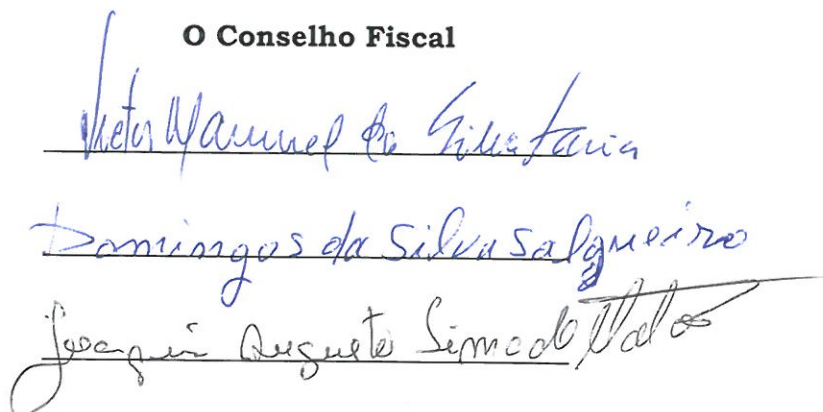 O Conselho Fiscal
Victor Manuel da Silva Faria
Domingos da Silva Salgueiro
Joaquim Augusto Simão do